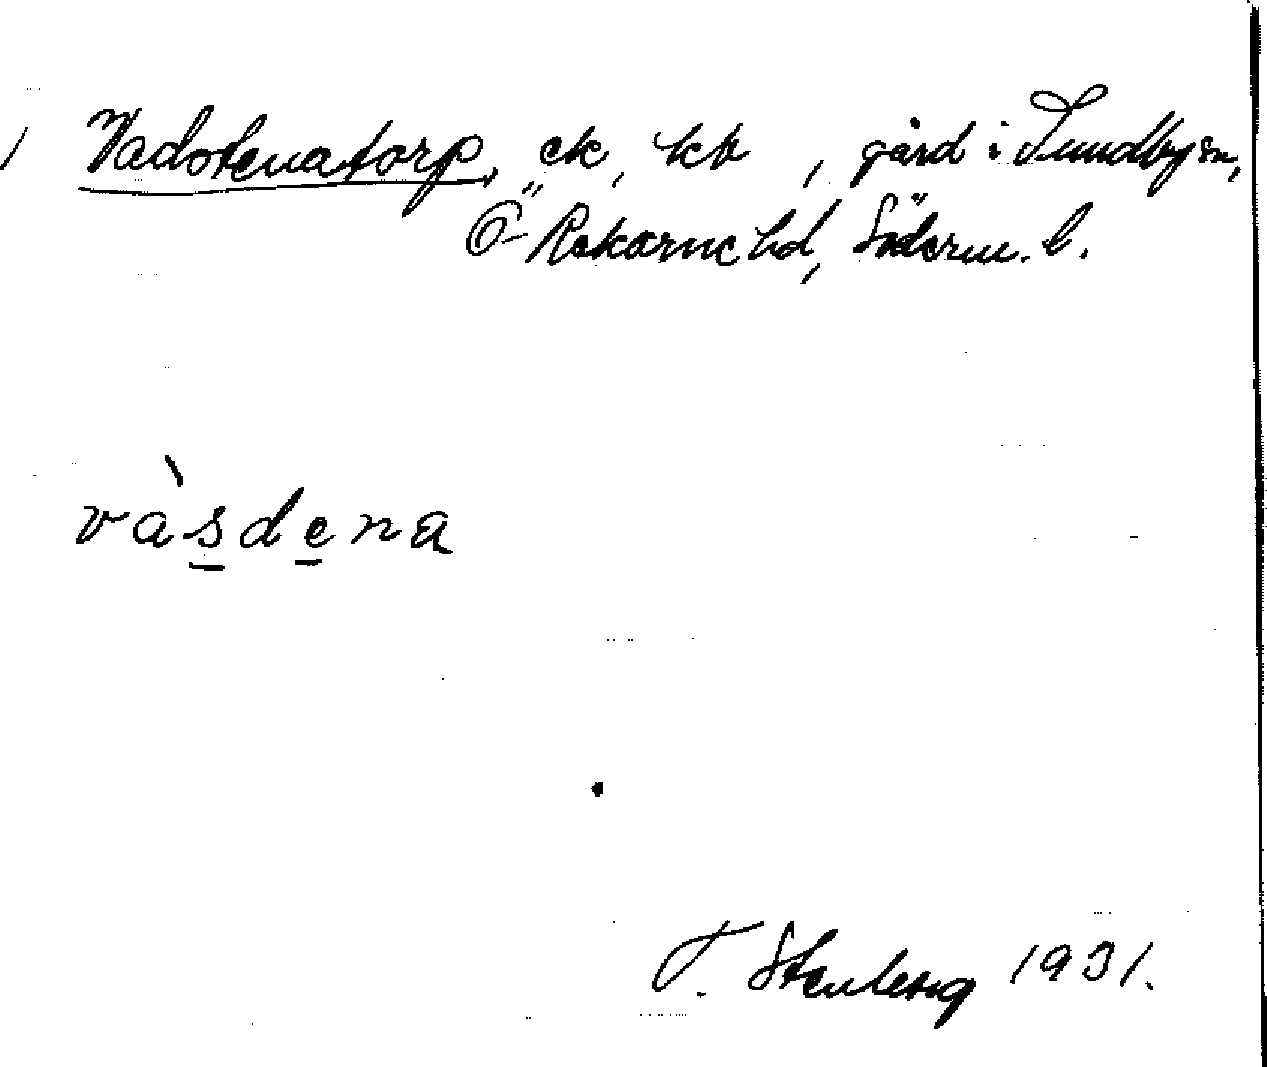 Vadstenatorp, ek, kb, gård i Sundby sn,
Ö Rekarne hd, Söderm. l.
vàsdena
T. Stenberg 1931.